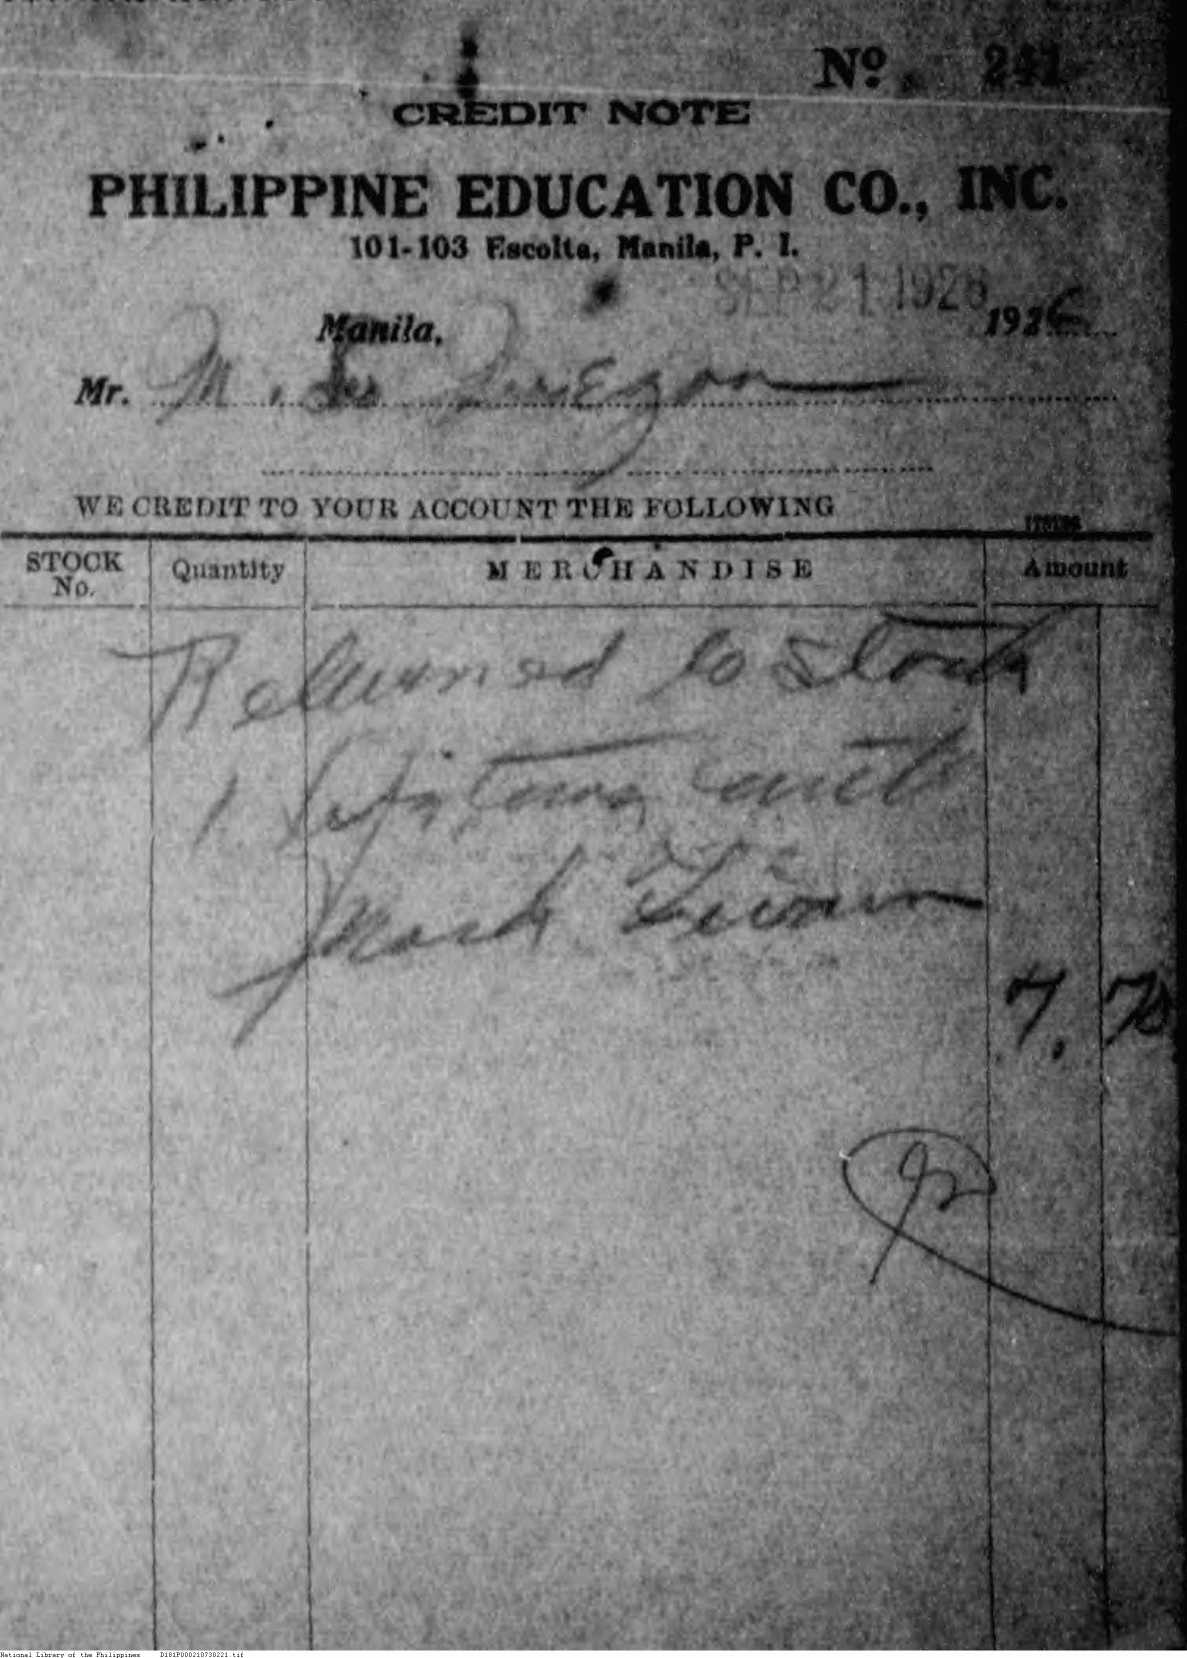 No. 241
CREDIT NOTE
PHILIPPINE EDUCATION CO., INC.
101-103 Escolta, Manila, P. I.
SEP 21 1926
Manila, 1926
Mr. M. L. Quezon
WE CREDIT TO YOUR ACCOUNT THE FOLLOWING
STOCK No. Quantity MERCHANDISE Amount
Returned to stock
1 with
Mark
7. 70
National Library of the Philippines D181P000210738221.tif